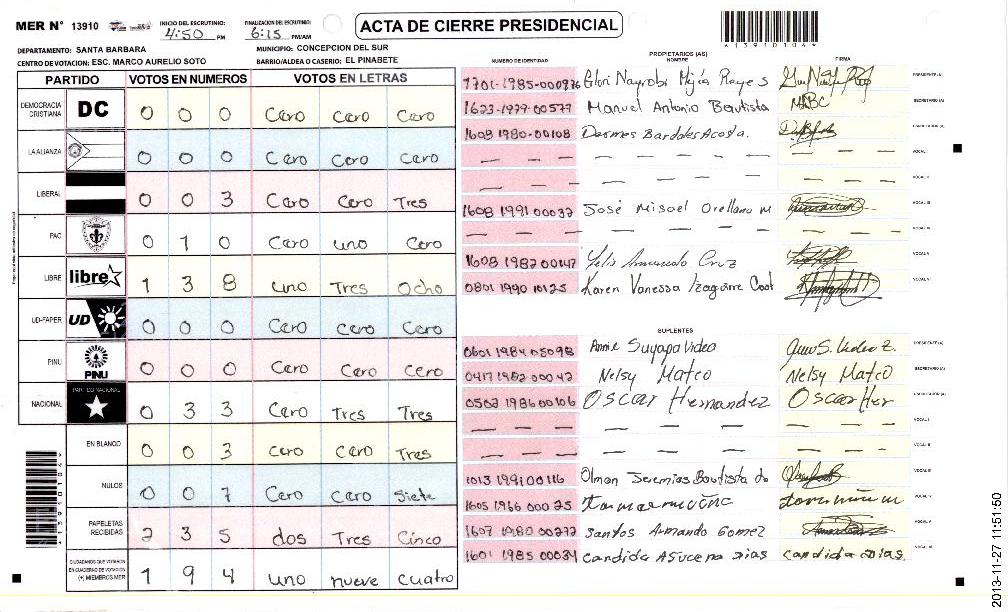 MER N° 13910
INICIO DEL ESCRUTINIO: 4:50 PM
FINALIZACION DEL ESCRUTINIO: 6:15 PM/AM
ACTA DE CIERRE PRESIDENCIAL
*13910104*
DEPARTAMENTO: SANTA BARBARA
MUNICIPIO: CONCEPCION DEL SUR
CENTRO DE VOTACION: ESC. MARCO AURELIO SOTO
BARRIO/ALDEA O CASERIO: EL PINABETE
PARTIDO VOTOS EN NUMEROS VOTOS EN LETRAS
DEMOCRACIA CRISTIANA DC 0 0 0 Cero Cero Cero
LA ALIANZA 0 0 0 Cero Cero Cero
LIBERAL 0 0 3 Cero Cero Tres
PAC 0 1 0 Cero uno Cero
LIBRE libre 1 3 8 uno Tres Ocho
UD-FAPER UD 0 0 0 Cero Cero Cero
PINU PINU 0 0 0 Cero Cero Cero
NACIONAL PARTIDO NACIONAL 0 3 3 Cero Tres Tres
EN BLANCO 0 0 3 Cero Cero Tres
NULOS 0 0 7 Cero Cero Siete
PAPELETAS RECIBIDAS 2 3 5 dos Tres Cinco
CIUDADANOS QUE VOTARON EN CUADERNO DE VOTACION (+) MIEMBROS MER 1 9 4 uno nueve cuatro
*13910104*
PROPIETARIOS (AS)
NUMERO DE IDENTIDAD NOMBRE FIRMA
1701-1985-000976 Glori Nayrobi Mejía Reyes PRESIDENTE (A)
1623-1979-00577 Manuel Antonio Bautista MABC SECRETARIO (A)
1608 1980-00108 Dermes Bardales Acosta.
— — — — — — — — — VOCAL I
— — — — — — — — — VOCAL II
1608 1991 00032 José Misael Orellana M VOCAL III
— — — — — — — — — VOCAL IV
1608 1982 00147 Felis Armando Cruz VOCAL V
0801 1990 10125 Karen Vanessa Izaguirre Coot VOCAL VI
SUPLENTES
0601 1984 05098 Annie Suyapa Video PRESIDENTE (A)
0417 1982 00042 Nelsy Mateo Nelsy Mateo SECRETARIO (A)
0502 1986 00106 Oscar Hernandez Oscar Her
— — — — — — — — — VOCAL I
— — — — — — — — — VOCAL II
1013 1991 00116 Olman Jeremias Bautista do VOCAL III
1605 1966 000 25 VOCAL IV
1607 1980 00272 Santos Armando Gomez VOCAL V
1601 1985 00034 Candida Asucena dias candida dias. VOCAL VI
2013-11-27 11:51:50